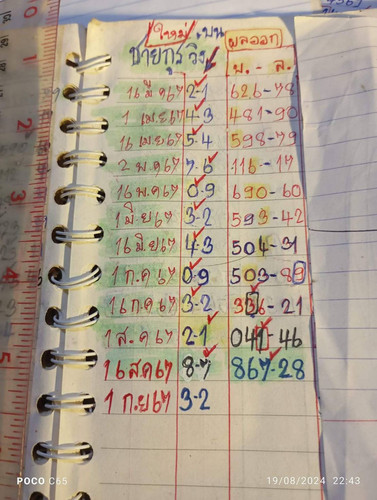 ใหม่ บน ผลออก
ชายกูร วิ่ง บ. - ล.
16 มี ค 67 2-1 626-78
1 เม.ย 67 4-3 481-90
16 เม.ย 67 5-4 598-79
2 พ.ค 67 7-6 116-17
16 พ.ค 67 0-9 690-60
1 มิ.ย 67 3-2 593-42
16 มิ.ย 67 4-3 504-31
1 ก.ค 67 0-9 503-89
16 ก.ค 67 3-2 336-21
1 ส.ค 67 2-1 041-46
16 ส.ค 67 8-7 867-28
1 ก.ย 67 3-2
0
1
3
4
5
POCO C65
19/08/2024 22:43